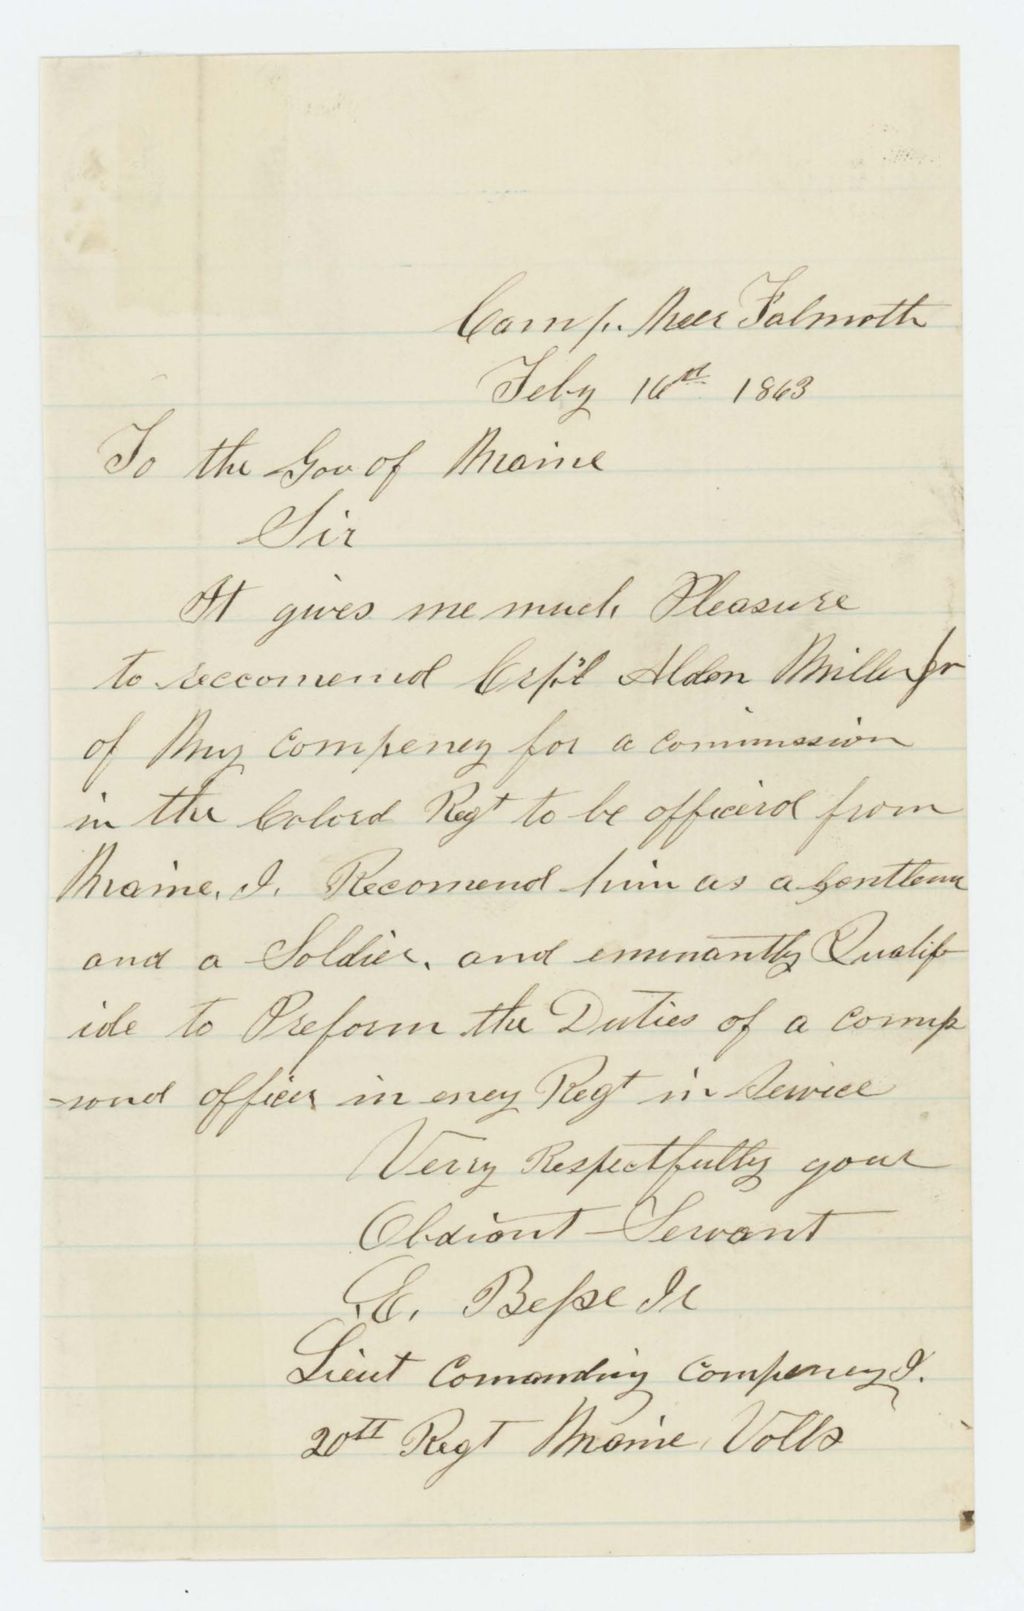 Camp. Neer Falmoth
Feby 16st 1863
To the Gov of Maine
Sir
It gives me much Pleasure
to reccomend Crp'l Alden Miller Jr
of My compeney for a commission
in the Colord Regt to be officerd from
Maine. I. Recomend him as a gentleman
and a Soldier. and emenantly Qualif
ide to Preform the Duties of a comp
officer in eney Regt in Service
Verry Respectfully your
Obdiont Servant
E. Besse Jr
Lieut Comanding Compeney I.
20th Regt Maine Volls